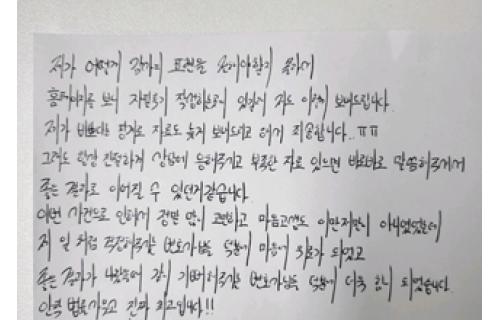 제가 어떻게 감사의 표현을 전해야할지 몰라서
홈페이지를 보니 자필후기 작성하신분이 있길래 저도 이렇게 보내드립니다.
제가 바쁘다는 핑계로 자료도 늦게 보내드리고 해서 죄송합니다..ㅠㅠ
그래도 항상 친절하게 상담에 응해주시고 부족한 자료 있으면 바로바로 말씀해주셔서
좋은 결과로 이어질 수 있던거같습니다.
이번 사건으로 인해서 정말 많이 고민하고 마음고생도 이만저만이 아니였었는데
제 일 처럼 걱정해주시는 변호사님들 덕분에 마음에 위로가 되었고
좋은 결과가 나왔을때 같이 기뻐해주시는 변호사님들 덕분에 더욱 힘이 되었습니다.
법률사무소 진짜 최고입니다!!